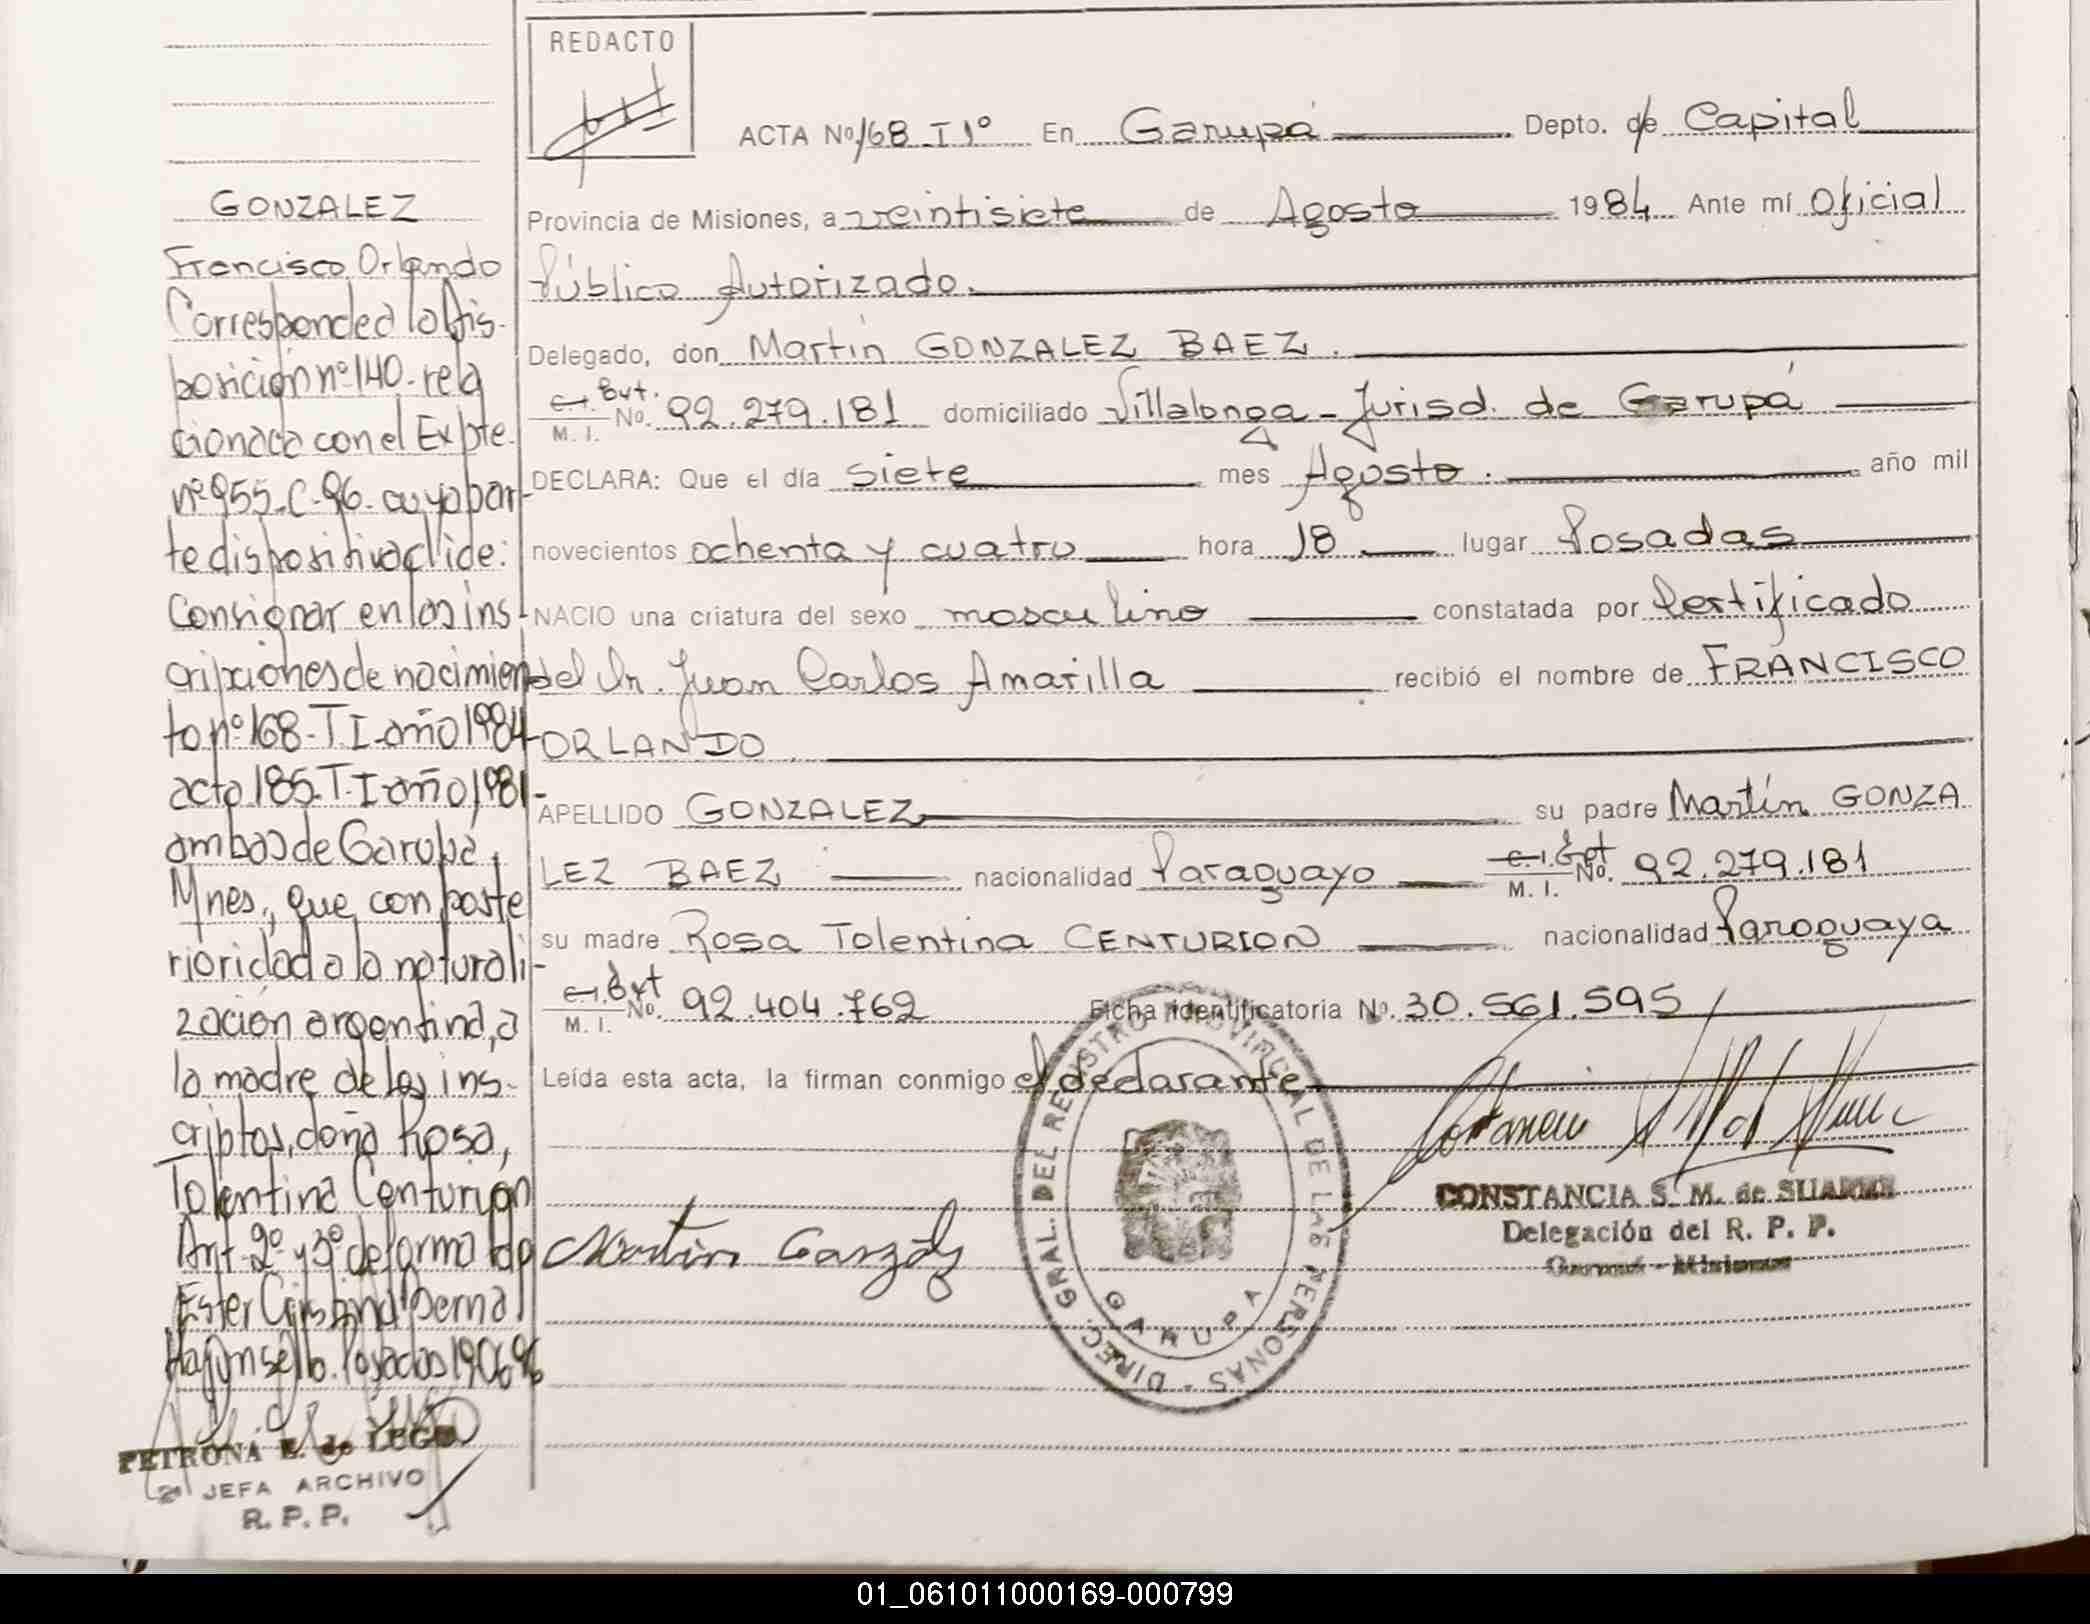 REDACTO
ACTA No. 168 - T 1º En Garupá Depto. de Capital
Provincia de Misiones, a veintisiete de Agosto 1984 Ante mí Oficial
Público Autorizado.
Delegado, don Martín GONZALEZ BAEZ.
C.I. M. I. No. 92.279.181 domiciliado Villalonga - Jurisd. de Garupá
DECLARA: Que el día siete mes Agosto. año mil
novecientos ochenta y cuatro hora 18 lugar Posadas
NACIO una criatura del sexo masculino constatada por Certificado
del Dr. Juan Carlos Amarilla recibió el nombre de FRANCISCO
ORLANDO
APELLIDO GONZALEZ su padre Martín GONZA
LEZ BAEZ nacionalidad Paraguayo C.I. M. I. No. 92.279.181
su madre Rosa Tolentina CENTURION nacionalidad Paraguaya
C.I. M. I. No. 92.404.762 Ficha identificatoria No. 30.561.595
Leída esta acta, la firman conmigo el declarante
Martin
DIREC. GRAL. DEL REGISTRO PROVINCIAL DE LAS PERSONAS -
GARUPA
CONSTANCIA S. M. de
Delegación del R. P. P.
Garupá - Misiones
GONZALEZ
Francisco Orlando
Corresponde a la Dis-
posición nº 140. rela
cionada con el Expte.
nº 955-C-96. cuya par-
te dispositiva dice:
Consignar en las ins-
cripciones de nacimien
to nº 168-T.I-año 1984
acta 185-T.I-año 1981-
ambas de Garupá,
Mnes., que con poste
rioridad a la naturali-
zación argentina, a
la madre de los ins-
criptos, doña Rosa,
Tolentina Centurion
Art. 2º y 3º de forma fdo
Ester Cristina Bernal
Hay un sello. Posadas 190696
PETRONA E. de LUGO
2º JEFA ARCHIVO
R. P. P.
01_061011000169-000799